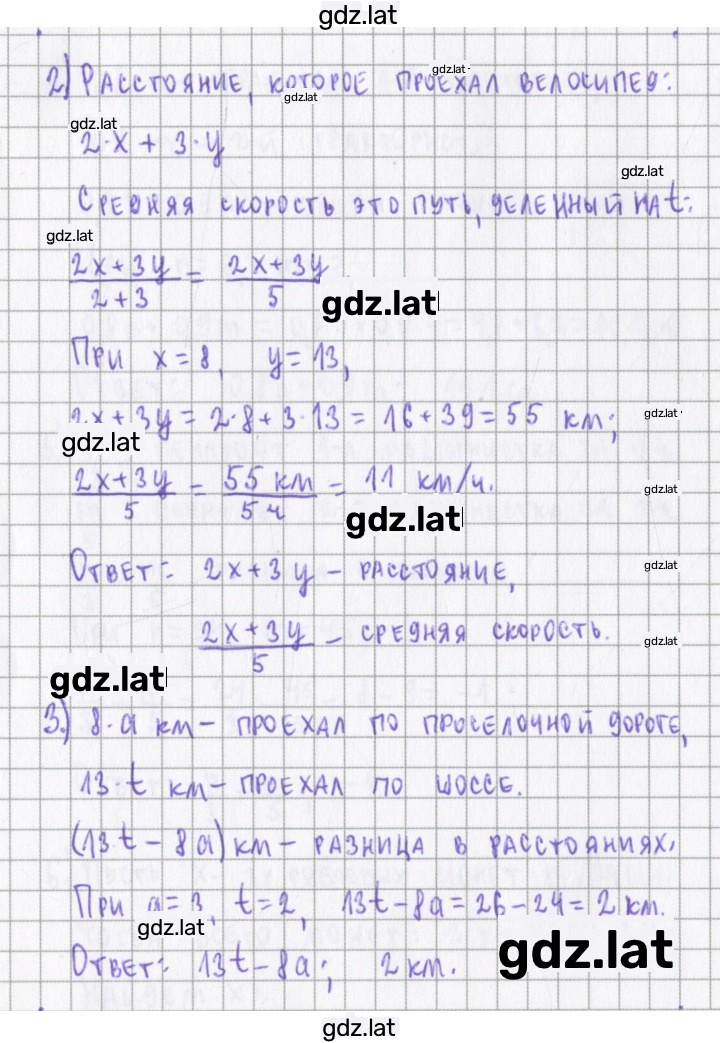 gdz.lat
2) Расстояние, которое проехал велосипед:
gdz.lat
gdz.lat
gdz.lat
2·x + 3·y
gdz.lat
Средняя скорость это путь, деленный на t:
gdz.lat
2x+3y / 2+3 = 2x+3y / 5
gdz.lat
При x=8, y=13,
2x+3y = 2·8+3·13 = 16+39 = 55 км;
gdz.lat
gdz.lat
2x+3y / 5 = 55 км / 5ч = 11 км/ч.
gdz.lat
gdz.lat
Ответ: 2x+3y – расстояние,
gdz.lat
2x+3y / 5 – средняя скорость.
gdz.lat
gdz.lat
3.) 8·a км – проехал по проселочной дороге,
13·t км – проехал по шоссе.
(13t – 8a) км – разница в расстояниях.
При a=3, t=2, 13t–8a = 26–24 = 2 км.
gdz.lat
gdz.lat
Ответ: 13t–8a; 2 км.
gdz.lat